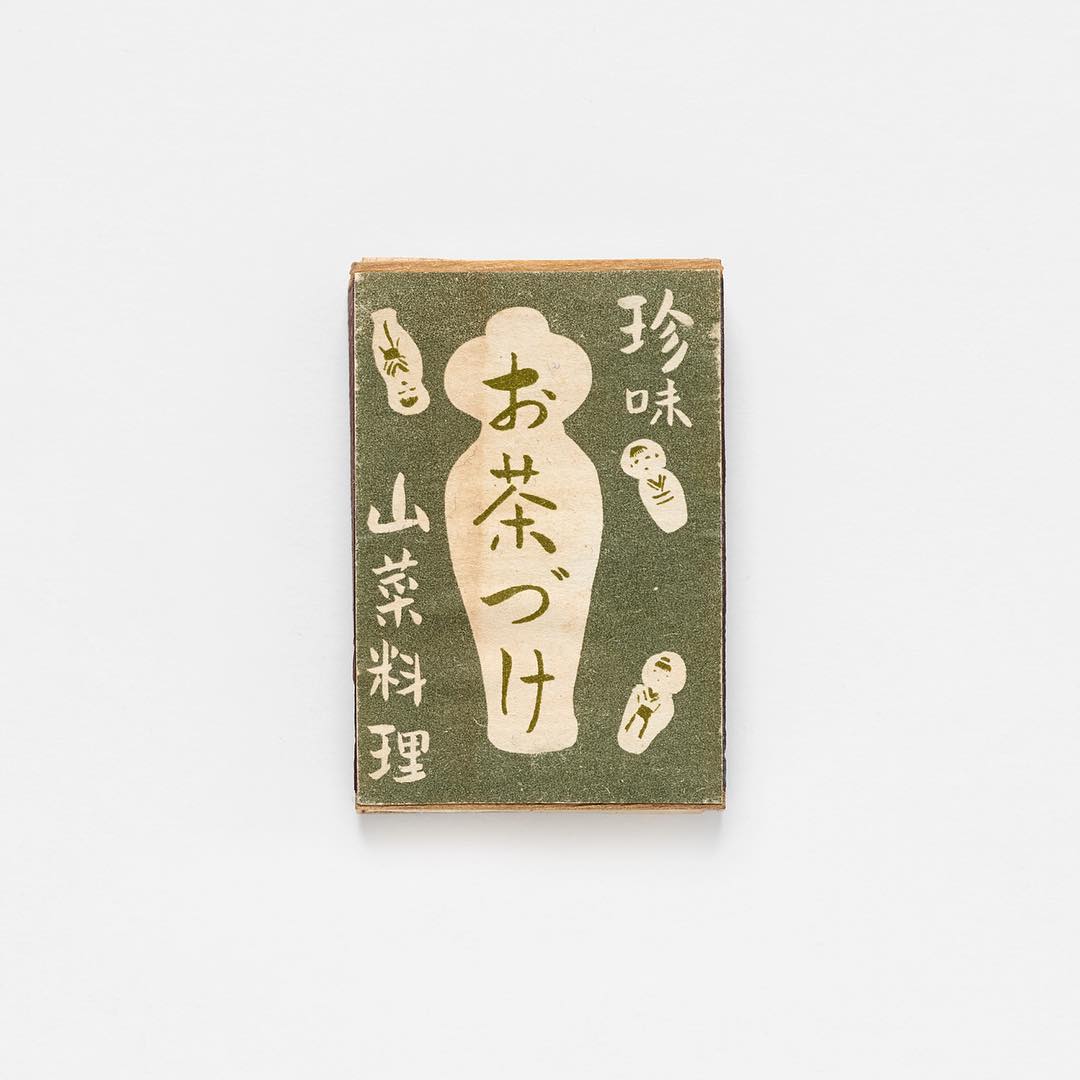 珍味
お茶づけ
山菜料理